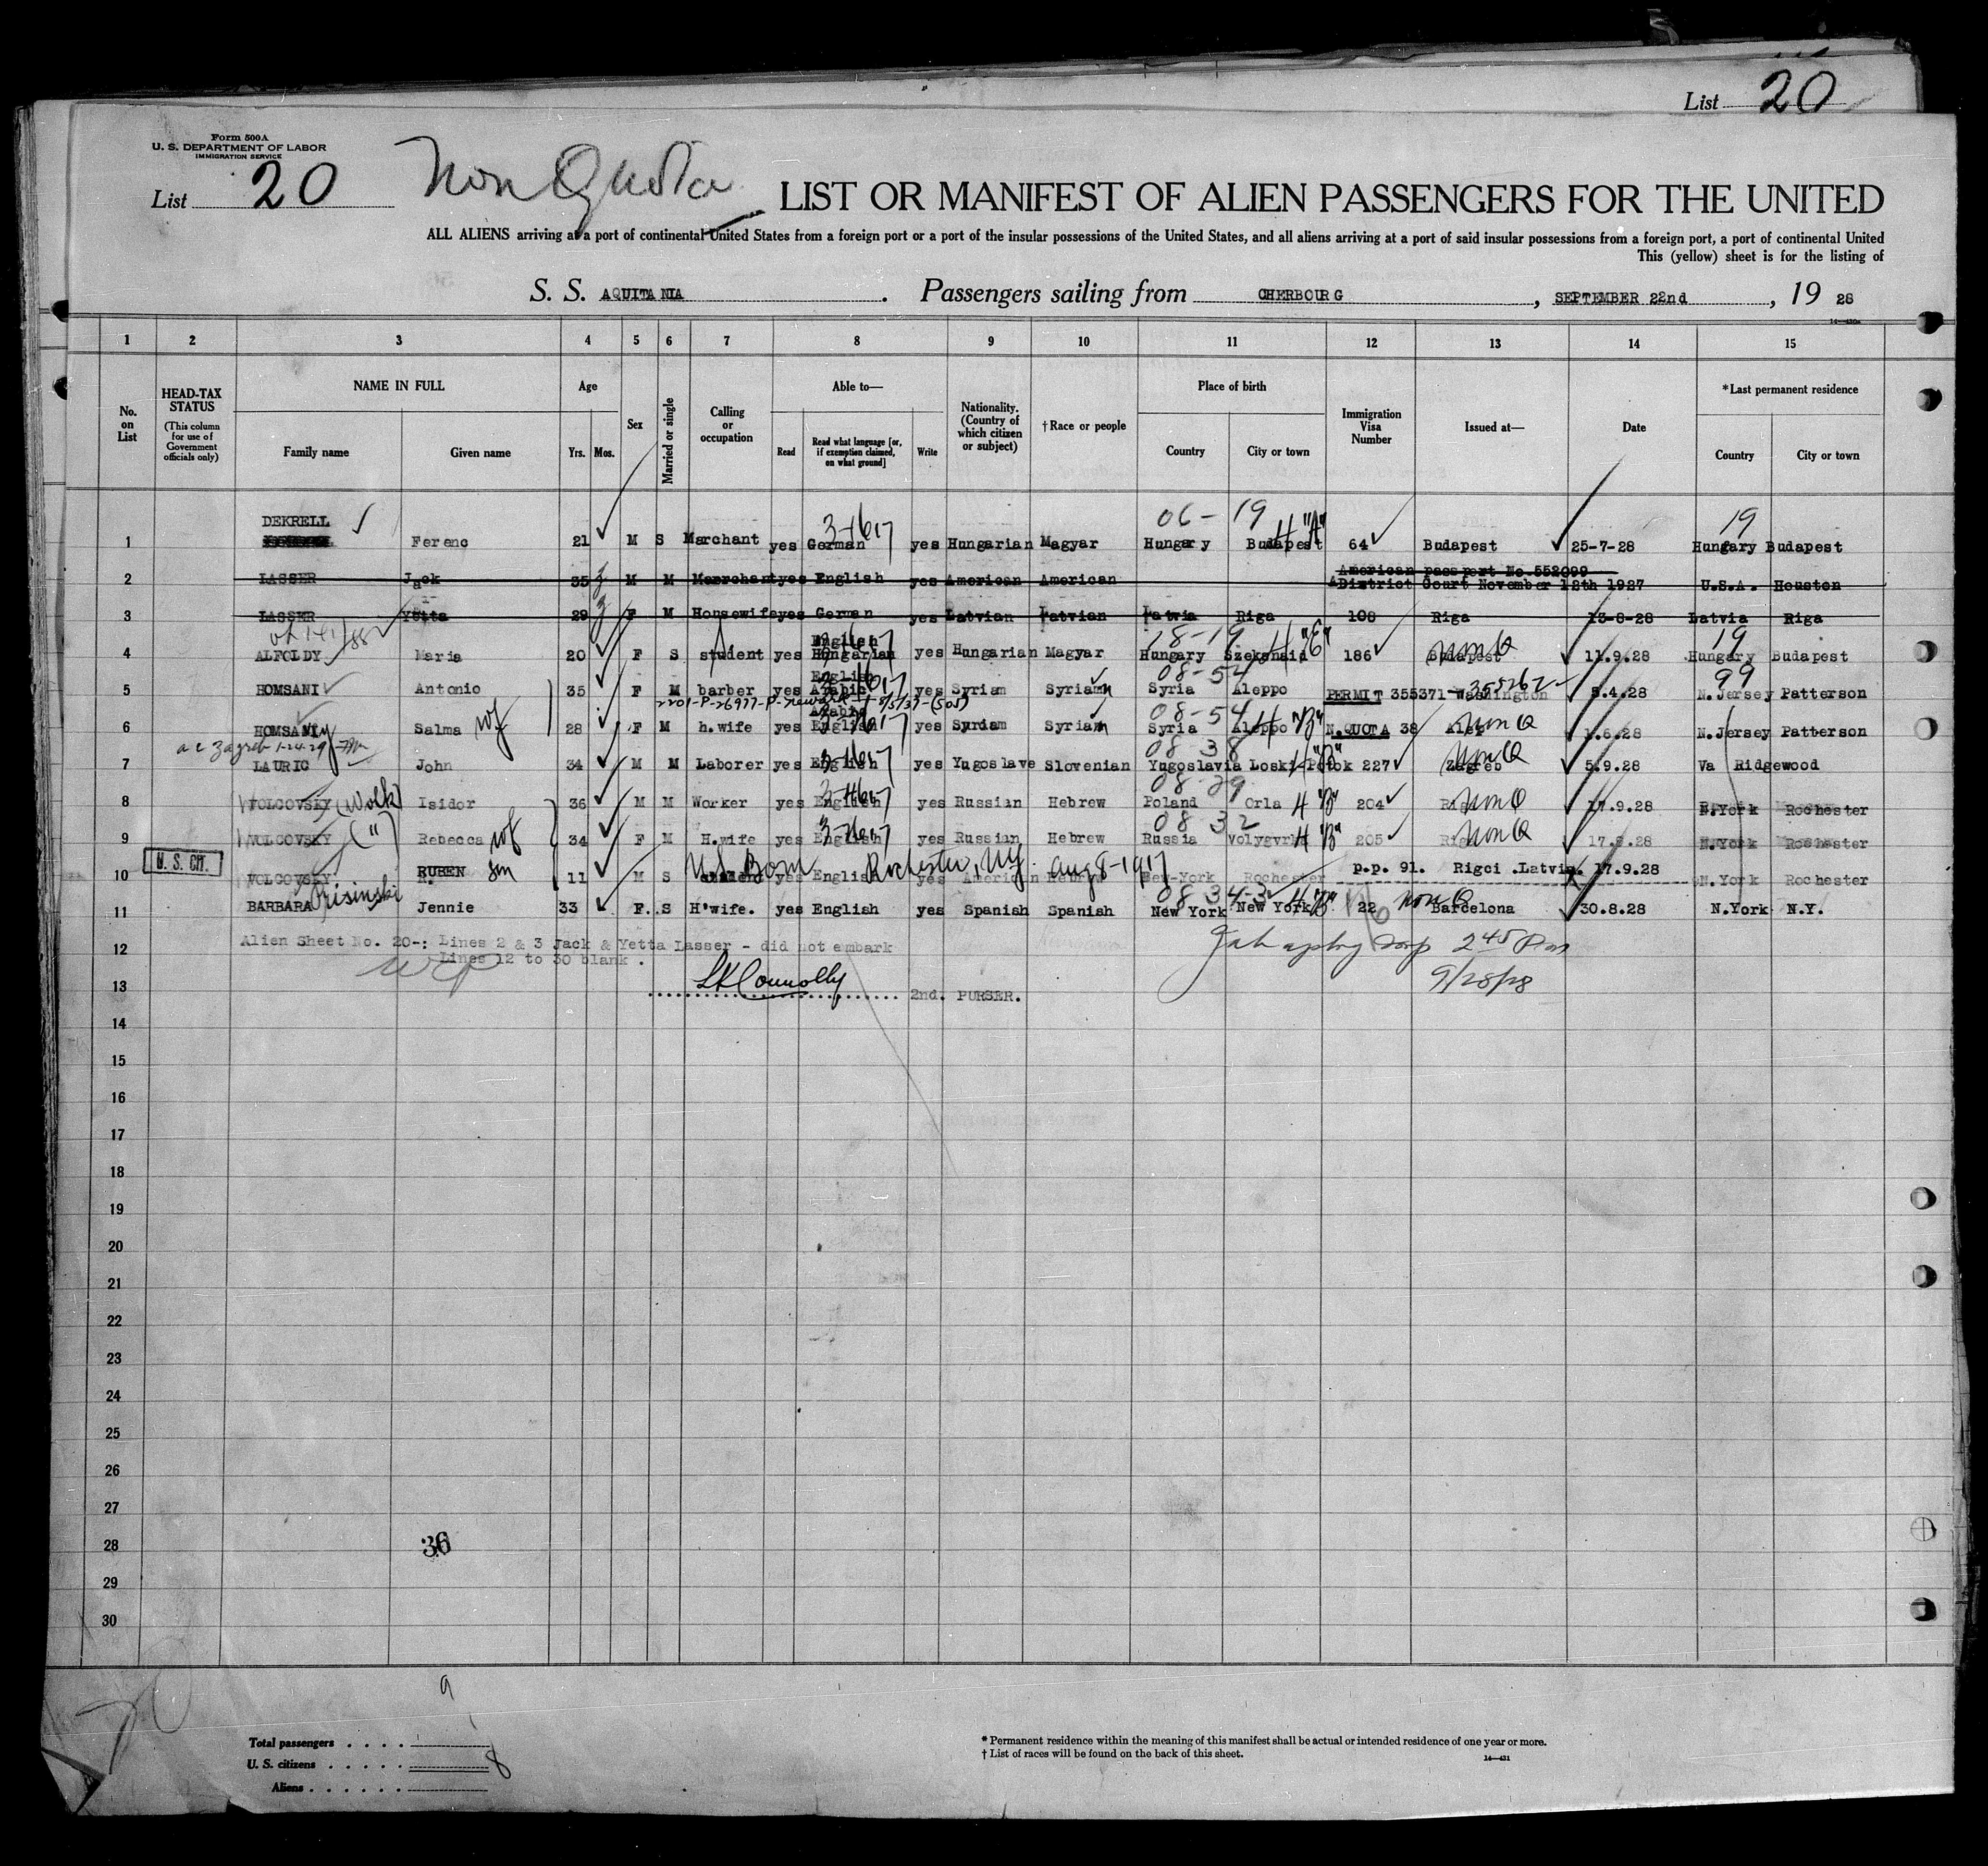 List 20
Form 500A
U. S. DEPARTMENT OF LABOR
IMMIGRATION SERVICE
List 20 Non Quota LIST OR MANIFEST OF ALIEN PASSENGERS FOR THE UNITED
ALL ALIENS arriving at a port of continental United States from a foreign port or a port of the insular possessions of the United States, and all aliens arriving at a port of said insular possessions from a foreign port, a port of continental United
This (yellow) sheet is for the listing of
S. S. AQUITANIA . Passengers sailing from CHERBOURG , SEPTEMBER 22nd , 19 28
1 2 3 4 5 6 7 8 9 10 11 12 13 14 15
No. on List
HEAD-TAX STATUS (This column for use of Government officials only)
NAME IN FULL
Family name Given name
Age
Yrs. Mos.
Sex
Married or single
Calling or occupation
Able to—
Read Read what language [or, if exemption claimed, on what ground] Write
Nationality. (Country of which citizen or subject)
† Race or people
Place of birth
Country City or town
Immigration Visa Number
Issued at—
Date
*Last permanent residence
Country City or town
06-19 19
DEKRELL 3-1617 4 "A"
1 Ferenc 21 M S Merchant yes German yes Hungarian Magyar Hungary Budapest 64 Budapest 25-7-28 Hungary Budapest
American passport No.552099
2 LASSER Jack 35 M M Merrchant yes English yes American American District Court November 12th 1927 U.S.A. Houston
3 LASSER Yetta 29 F M Housewife yes German yes Latvian Latvian Latvia Riga 108 Riga 13-8-28 Latvia Riga
English 18-19 4 "E" 19
4 ALFOLDY Maria 20 F S student yes Hungarian yes Hungarian Magyar Hungary Szekshaid 186 Budapest Non Q 11.9.28 Hungary Budapest
English 08-54 99
5 HOMSANI Antonio 35 F M barber yes Arabic yes Syrian Syrian Syria Aleppo PERMIT 355371 Washington 5.4.28 N.Jersey Patterson
2201-P-26977-P-Newark-
Arabic 08-54 4 "B"
6 HOMSANI Salma wf 28 F M h.wife yes English yes Syrian Syrian Syria Aleppo N.QUOTA 38 Non Q 1.6.28 N.Jersey Patterson
Zagreb 1-24-29
08 38 4 "B"
7 LAURIC John 34 M M Laborer yes English yes Yugoslave Slovenian Yugoslavia Loski Potok 227 Zagreb Non Q 5.9.28 Va Ridgewood
08-29
8 WOLCOVSKY (Wolk) Isidor 36 M M Worker yes English yes Russian Hebrew Poland Orla 4 "B" 204 Riga Non Q 17.9.28 N.York Rochester
08 32
9 WOLCOVSKY (") Rebecca wf 34 F M H.wife yes English yes Russian Hebrew Russia 4 "B" 205 Riga Non Q 17.9.28 N.York Rochester
U. S. CIT. RUBEN son U.S. Born Rochester, N.Y. Aug 8-1917
10 WOLCOVSKY R. 11 M S student yes English yes American Hebrew New-York Rochester p.p. 91. Rigci .Latvia. 17.9.28 N.York Rochester
11 BARBARA Jennie 33 F. S H'wife. yes English yes Spanish Spanish New York New York 4 "B" 22 Non Q Barcelona 30.8.28 N.York N.Y.
12 Alien Sheet No. 20-: Lines 2 & 3 Jack & Yetta Lasser - did not embark
Lines 12 to 30 blank .
2 45 Pm
9/28/28
13 2nd. PURSER.
14
15
16
17
18
19
20
21
22
23
24
25
26
27
28 36
29
30
9
Total passengers
U. S. citizens 8
Aliens
* Permanent residence within the meaning of this manifest shall be actual or intended residence of one year or more.
† List of races will be found on the back of this sheet.
14—431